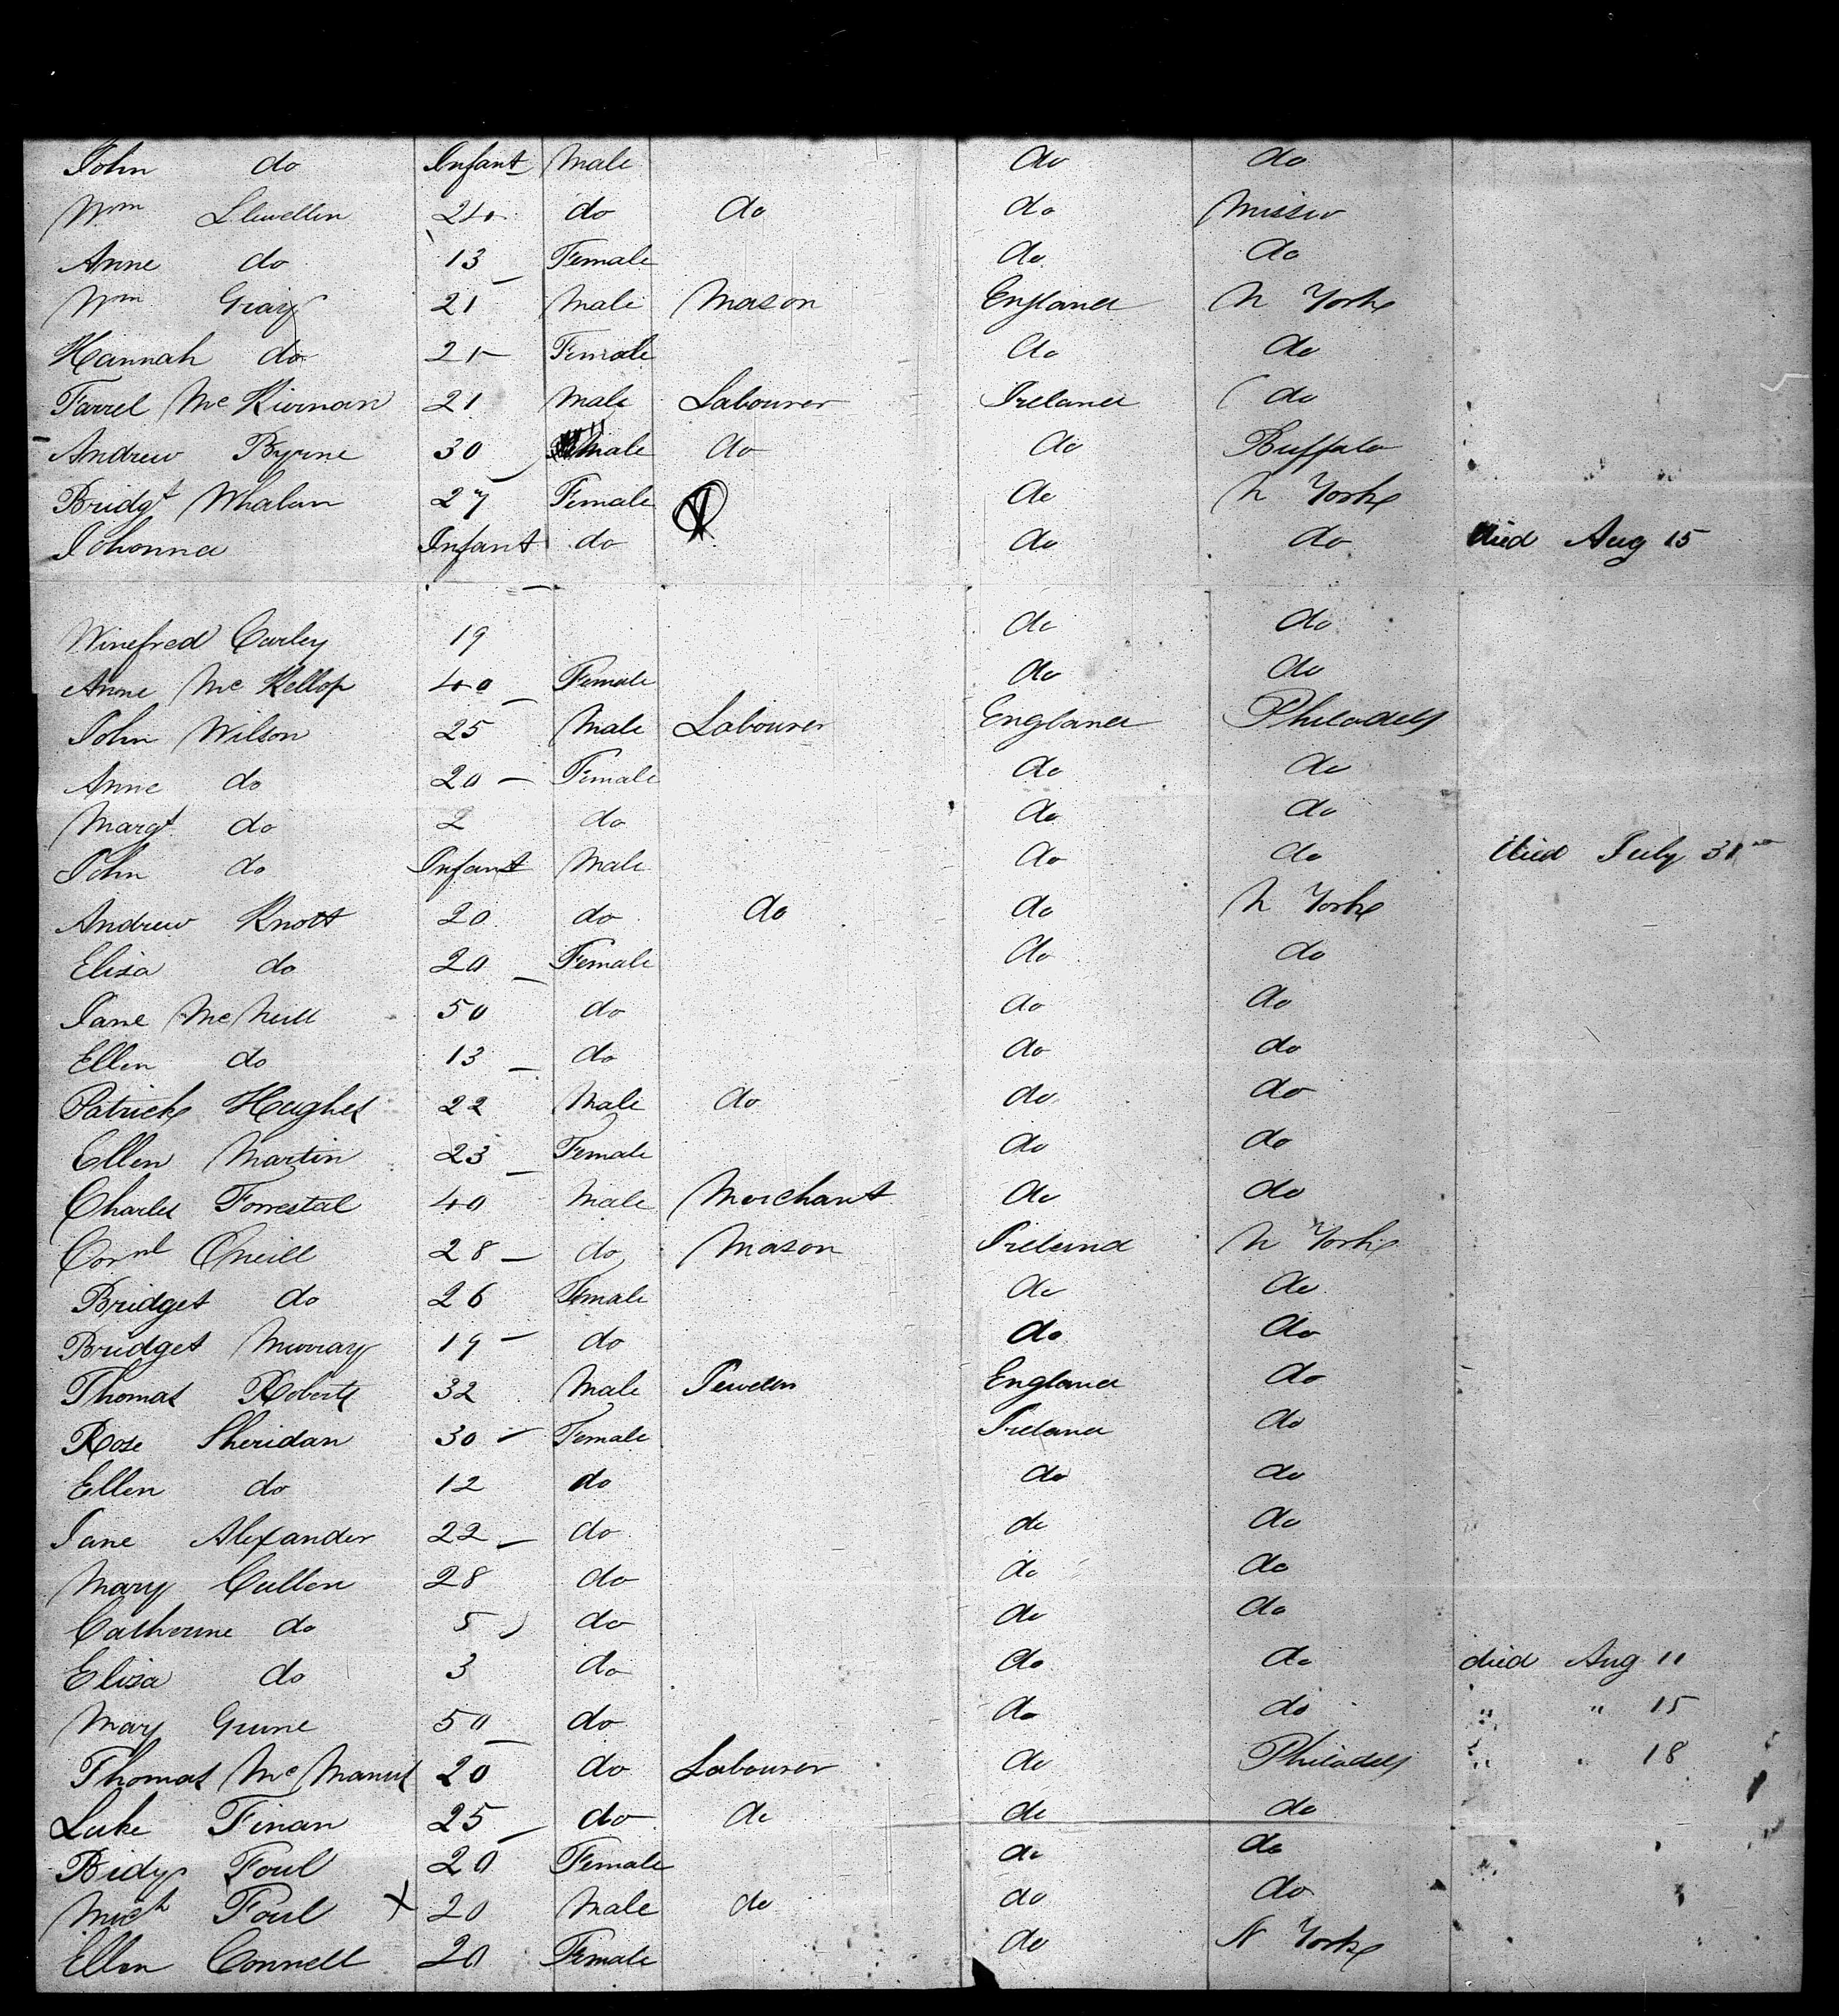 John do Infant Male do do
Wm Llewellin 24 do do do Missio
Anne do 13 Female do do
Wm Gray 21 Male Mason England N York
Hannah do 21 Female do do
Farrel McKiernan 21 Male Labourer Ireland do
Andrew Byrne 30 Male do do Buffalo
Bridgt Whalan 27 Female do N York
Johanna Infant do do do died Aug 15
Winefred Curley 19 do do
Anne McKellop 40 Female do do
John Wilson 25 Male Labourer England Philadelp
Anne do 20 Female do do
Margt do 2 do do do
John do Infant Male do do died July 31
Andrew Knott 20 do do do N York
Eliza do 20 Female do do
Jane McNeill 50 do do do
Ellen do 13 do do do
Patrick Hughes 22 Male do do do
Ellen Martin 23 Female do do
Charles Forrestal 40 Male Merchant do do
Cornl ONeill 28 do Mason Ireland N York
Bridget do 26 Female do do
Bridget Murray 19 do do do
Thomas Roberts 32 Male England do
Rose Sheridan 30 Female Ireland do
Ellen do 12 do do do
Jane Alexander 22 do do do
Mary Cullen 28 do do do
Catherine do 5 do do do
Eliza do 3 do do do died Aug 11
Mary 50 do do do " " 15
Thomas McManus 20 do Labourer do Philadelp " " 18
Luke Finan 25 do do do do
Bidy Foul 20 Female do do
Mich Foul X 20 Male do do do
Ellen Connell 20 Female do N York